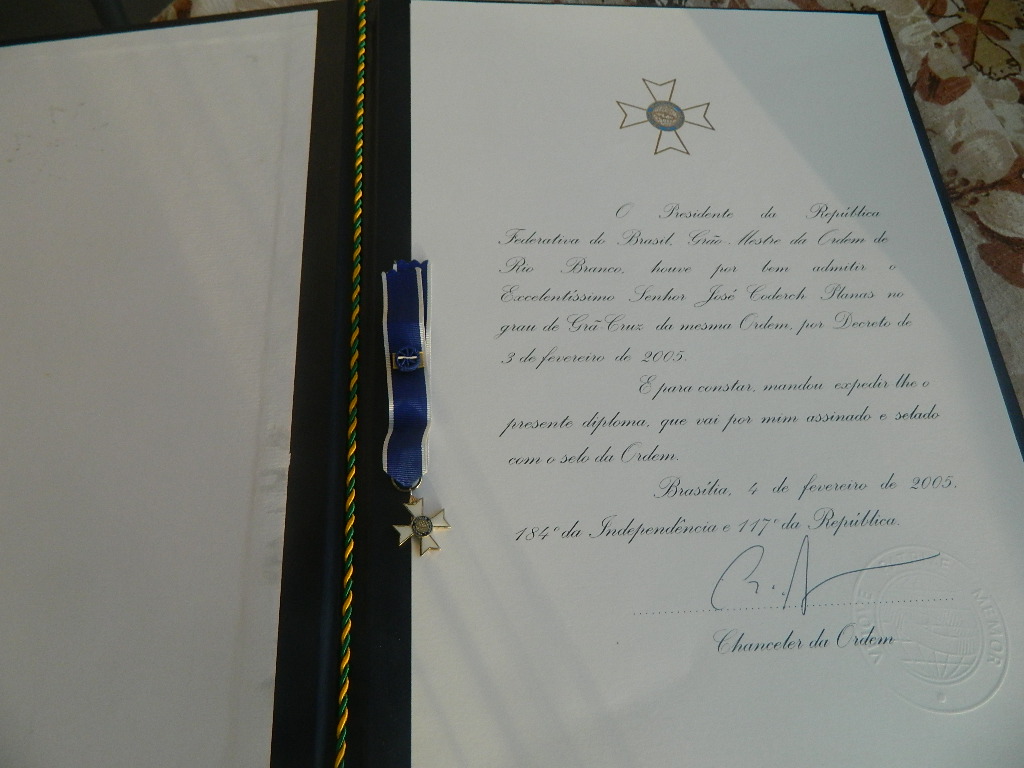 O Presidente da República
Federativa do Brasil, Grão-Mestre da Ordem de
Rio Branco, houve por bem admitir o
Excelentíssimo Senhor José Coderch Planas no
grau de Grã-Cruz da mesma Ordem, por Decreto de
3 de fevereiro de 2005.
E para constar, mandou expedir-lhe o
presente diploma, que vai por mim assinado e selado
com o selo da Ordem.
Brasília, 4 de fevereiro de 2005,
184º da Independência e 117º da República.
Chanceler da Ordem
MEMOR